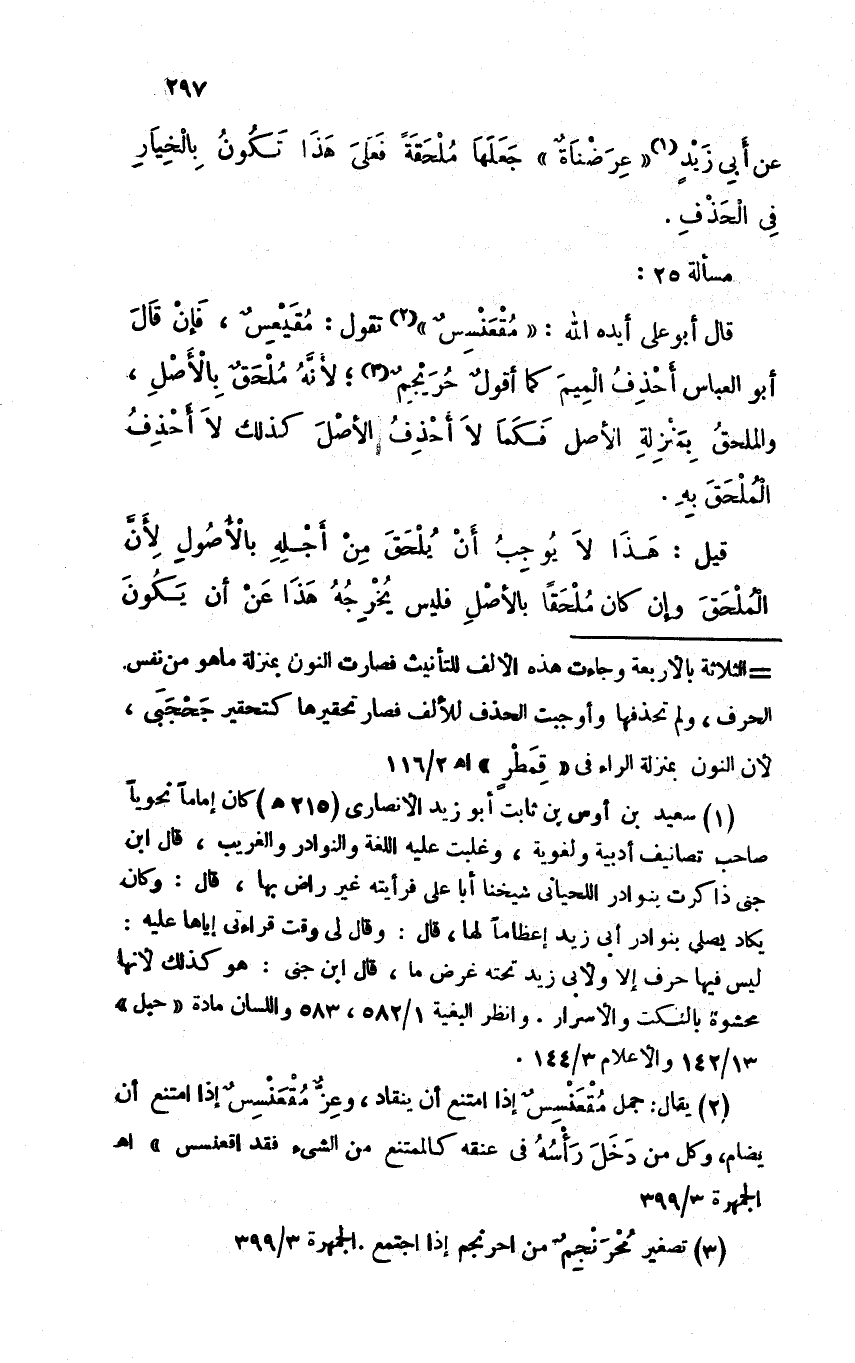 ٢٩٧
عن أَبِي زَيْدٍ(١) « عِرَضْنَاةٌ » جَعَلَهَا مُلْحَقَةً فَعَلَىَ هَذَا تَكُونُ بِالْخِيَارِ
فِى الْحَذْفِ .
مسألة ٢٥ :
قال أبو على أيده الله : « مُقْعَنْسِسٌ »(٢) تقول : مُقَيْعِسٌ ، فَإِنْ قَالَ
أبو العباس أَحْذِفُ الْمِيمَ كما أقولُ حُرَيْجِمٌ(٣) ؛ لأَنَّهُ مُلْحَقٌ بِالْأَصْلِ ،
والملحقُ بِمَنْزِلةِ الأصل فَكَمَا لاَ أَحْذِفُ الأصْلَ كذلك لاَ أَحْذِفُ
الْمُلْحَقَ بِهِ .
قيل : هَذَا لاَ يُوجِبُ أَنْ يُلْحَقَ مِنْ أَجْلِهِ بِالْأُصُولِ لِأَنَّ
الْمُلْحَقَ وإن كان مُلْحَقًا بالأصْلِ فليس يُخْرِجُهُ هَذَا عَنْ أن يَكُونَ
= الثلاثة بالأربعة وجاءت هذه الألف للتأنيث فصارت النون بمنزلة ماهو من نفس
الحرف ، ولم تحذفها وأوجبت الحذف للألف فصار تحقيرها كتحقير جَحْجَبَى ،
لأن النون بمنزلة الراء فى « قِمَطْرٍ » اهـ ١١٦/٢
(١) سعيد بن أوس بن ثابت أبو زيد الأنصارى (٢١٥ هـ) كان إماماً نحوياً
صاحب تصانيف أدبية ولغوية ، وغلبت عليه اللغة والنوادر والغريب ، قال ابن
جنى ذاكرت بنوادر اللحيانى شيخنا أبا على فرأيته غير راض بها ، قال : وكان
يكاد يصلي بنوادر أبى زيد إعظاماً لها ، قال : وقال لى وقت قراءتى إياها عليه :
ليس فيها حرف إلا ولأبى زيد تحته غرض ما ، قال ابن جنى : هو كذلك لأنها
محشوة بالنكت والأسرار . وانظر البغية ٥٨٢/١ ، ٥٨٣ واللسان مادة « حبل »
١٤٢/١٣ والأعلام ١٤٤/٣ .
(٢) يقال: جمل مُقْعَنْسِسٌ إذا امتنع أن ينقاد ، وعِزٌّ مُقْعَنْسِسٌ إذا امتنع أن
يضام، وكل من دَخَلَ رَأْسُهُ فى عنقه كالممتنع من الشىء فقد اقعنسس » اهـ
الجمهرة ٣٩٩/٣
(٣) تصغير مُحْرَنْجِمٌ من احرنجم إذا اجتمع . الجمهرة ٣٩٩/٣